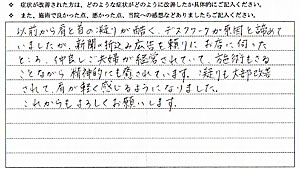 ※ 症状が改善された方は、どのような症状がどのように改善したか具体的にご記入ください。
※ また、施術で良かった点、悪かった点、当院への感想などありましたらご記入ください。
以前から肩と首の凝りが酷く、デスクワークが原因と諦めて
いましたが、新聞の折込み広告を頼りにお店に伺った
ところ、仲良しご夫婦が経営されていて、施術もさる
ことながら精神的にも癒されています。凝りも大部改善
されて、肩が軽く感じるようになりました。
これからもよろしくお願いします。